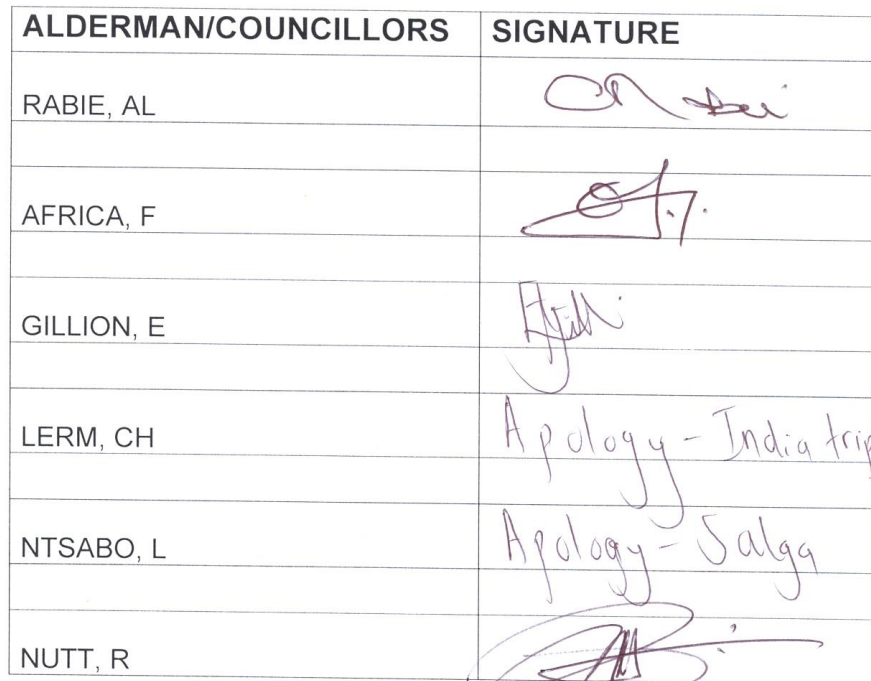 ALDERMAN/COUNCILLORS SIGNATURE
RABIE, AL
AFRICA, F
GILLION, E
LERM, CH Apology - India trip
NTSABO, L Apology - Salga
NUTT, R